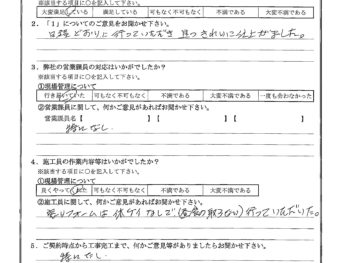 ※該当する項目に○を記入して下さい。
大変満足している 満足している 可もなく不可もなく 不満である 大変不満である
2．「1」についてのご意見をお聞かせ下さい。
日程どおりに行っていただき 見つきよいに仕上がました。
3．弊社の営業課員の対応はいかがでしたか？
※該当する項目に○を記入して下さい。
①現場管理について
行き届いていた 可もなく不可もなく 不満である 大変不満である 一度も会わなかった
②営業課員に関して、何かご意見があればお聞かせ下さい。
営業課員名【 】【 】【
特になし.
4．施工員の作業内容等はいかがでしたか？
※該当する項目に○を記入して下さい。
①現場管理について
良くやっていた 可もなく不可もなく 不満である 大変不満である
②施工員に関して、何かご意見があればお聞かせ下さい。
リフォームは 休ケイなしで 行っていただいた。
5．ご契約時点から工事完工まで、何かご意見等がありましたらお聞かせ下さい。
特になし.